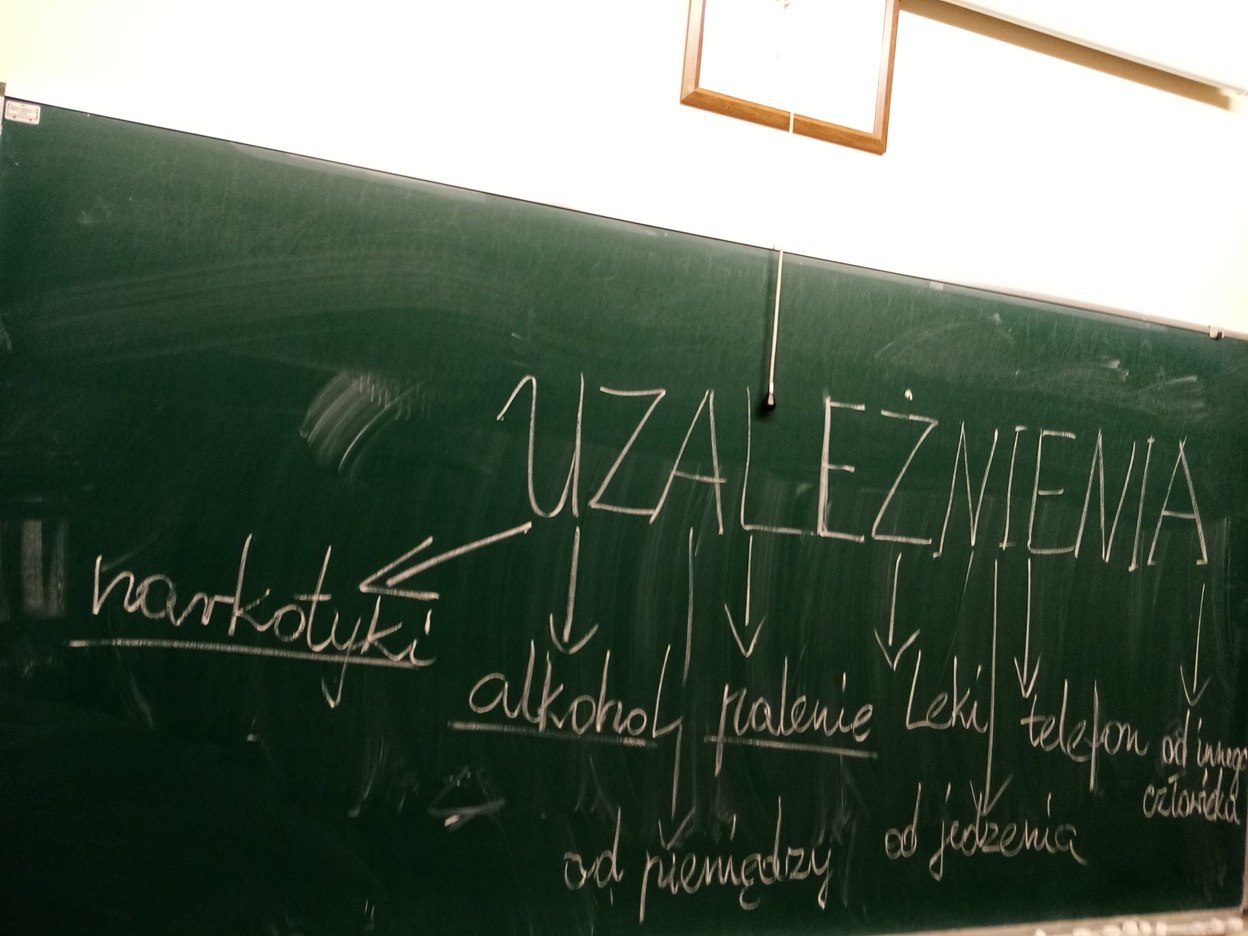 UZALEŻNIENIA
narkotyki
alkohol
palenie
Leki
telefon
od innego
człowieka
od pieniędzy
od jedzenia